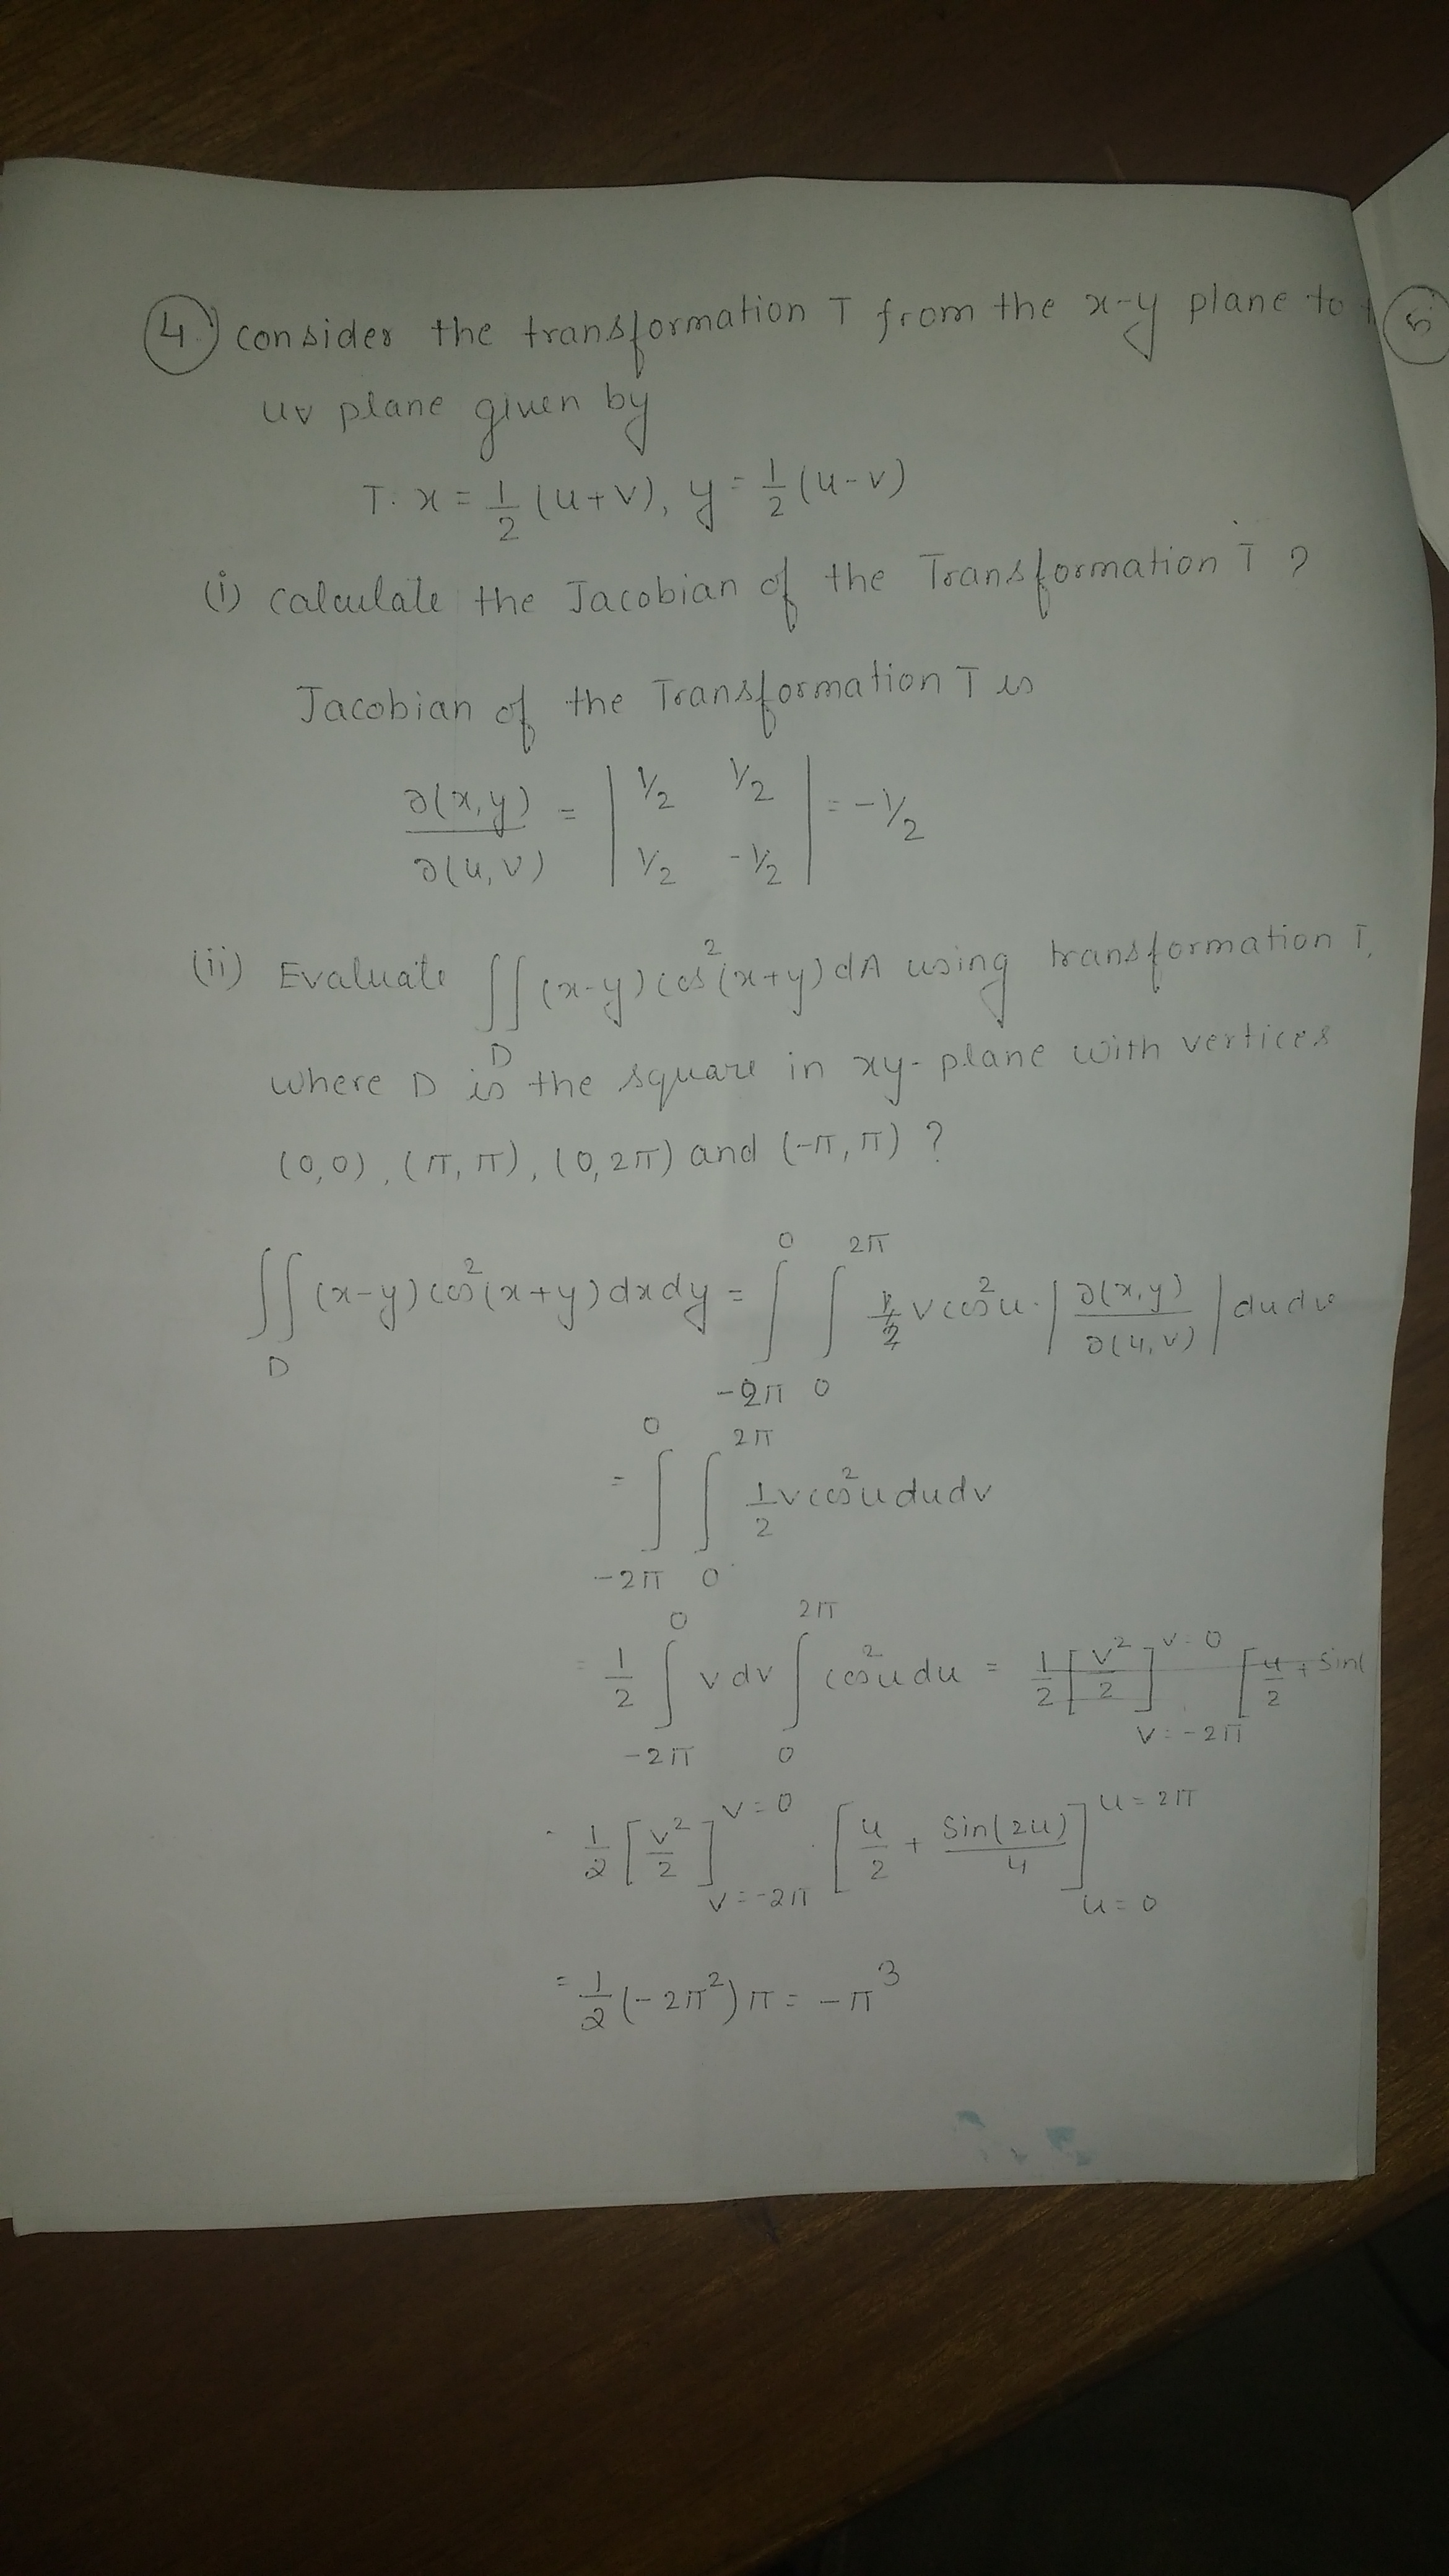 4. consider the transformation T from the x-y plane to
5
uv plane given by
T. x = 1/2 (u+v), y = 1/2 (u-v)
(i) calculate the Jacobian of the Transformation T ?
Jacobian of the Transformation T is
∂(x,y)/∂(u,v) = | 1/2 1/2 ; 1/2 -1/2 | = -1/2
(ii) Evaluate ∬_D (x-y) cos²(x+y) dA using transformation T,
where D is the square in xy-plane with vertices
(0,0), (π,π), (0,2π) and (-π,π) ?
∬_D (x-y) cos²(x+y) dx dy = ∫_{-2π}^{0} ∫_{0}^{2π} v cos²u · | ∂(x,y)/∂(u,v) | du dv
= ∫_{-2π}^{0} ∫_{0}^{2π} 1/2 v cos²u du dv
= 1/2 ∫_{-2π}^{0} v dv ∫_{0}^{2π} cos²u du = 1/2 [v²/2]_{v=-2π}^{v=0} [u/2 + sin(
1/2 [v²/2]_{v=-2π}^{v=0} · [u/2 + Sin(2u)/4]_{u=0}^{u=2π}
= 1/2 (-2π²) π = -π³